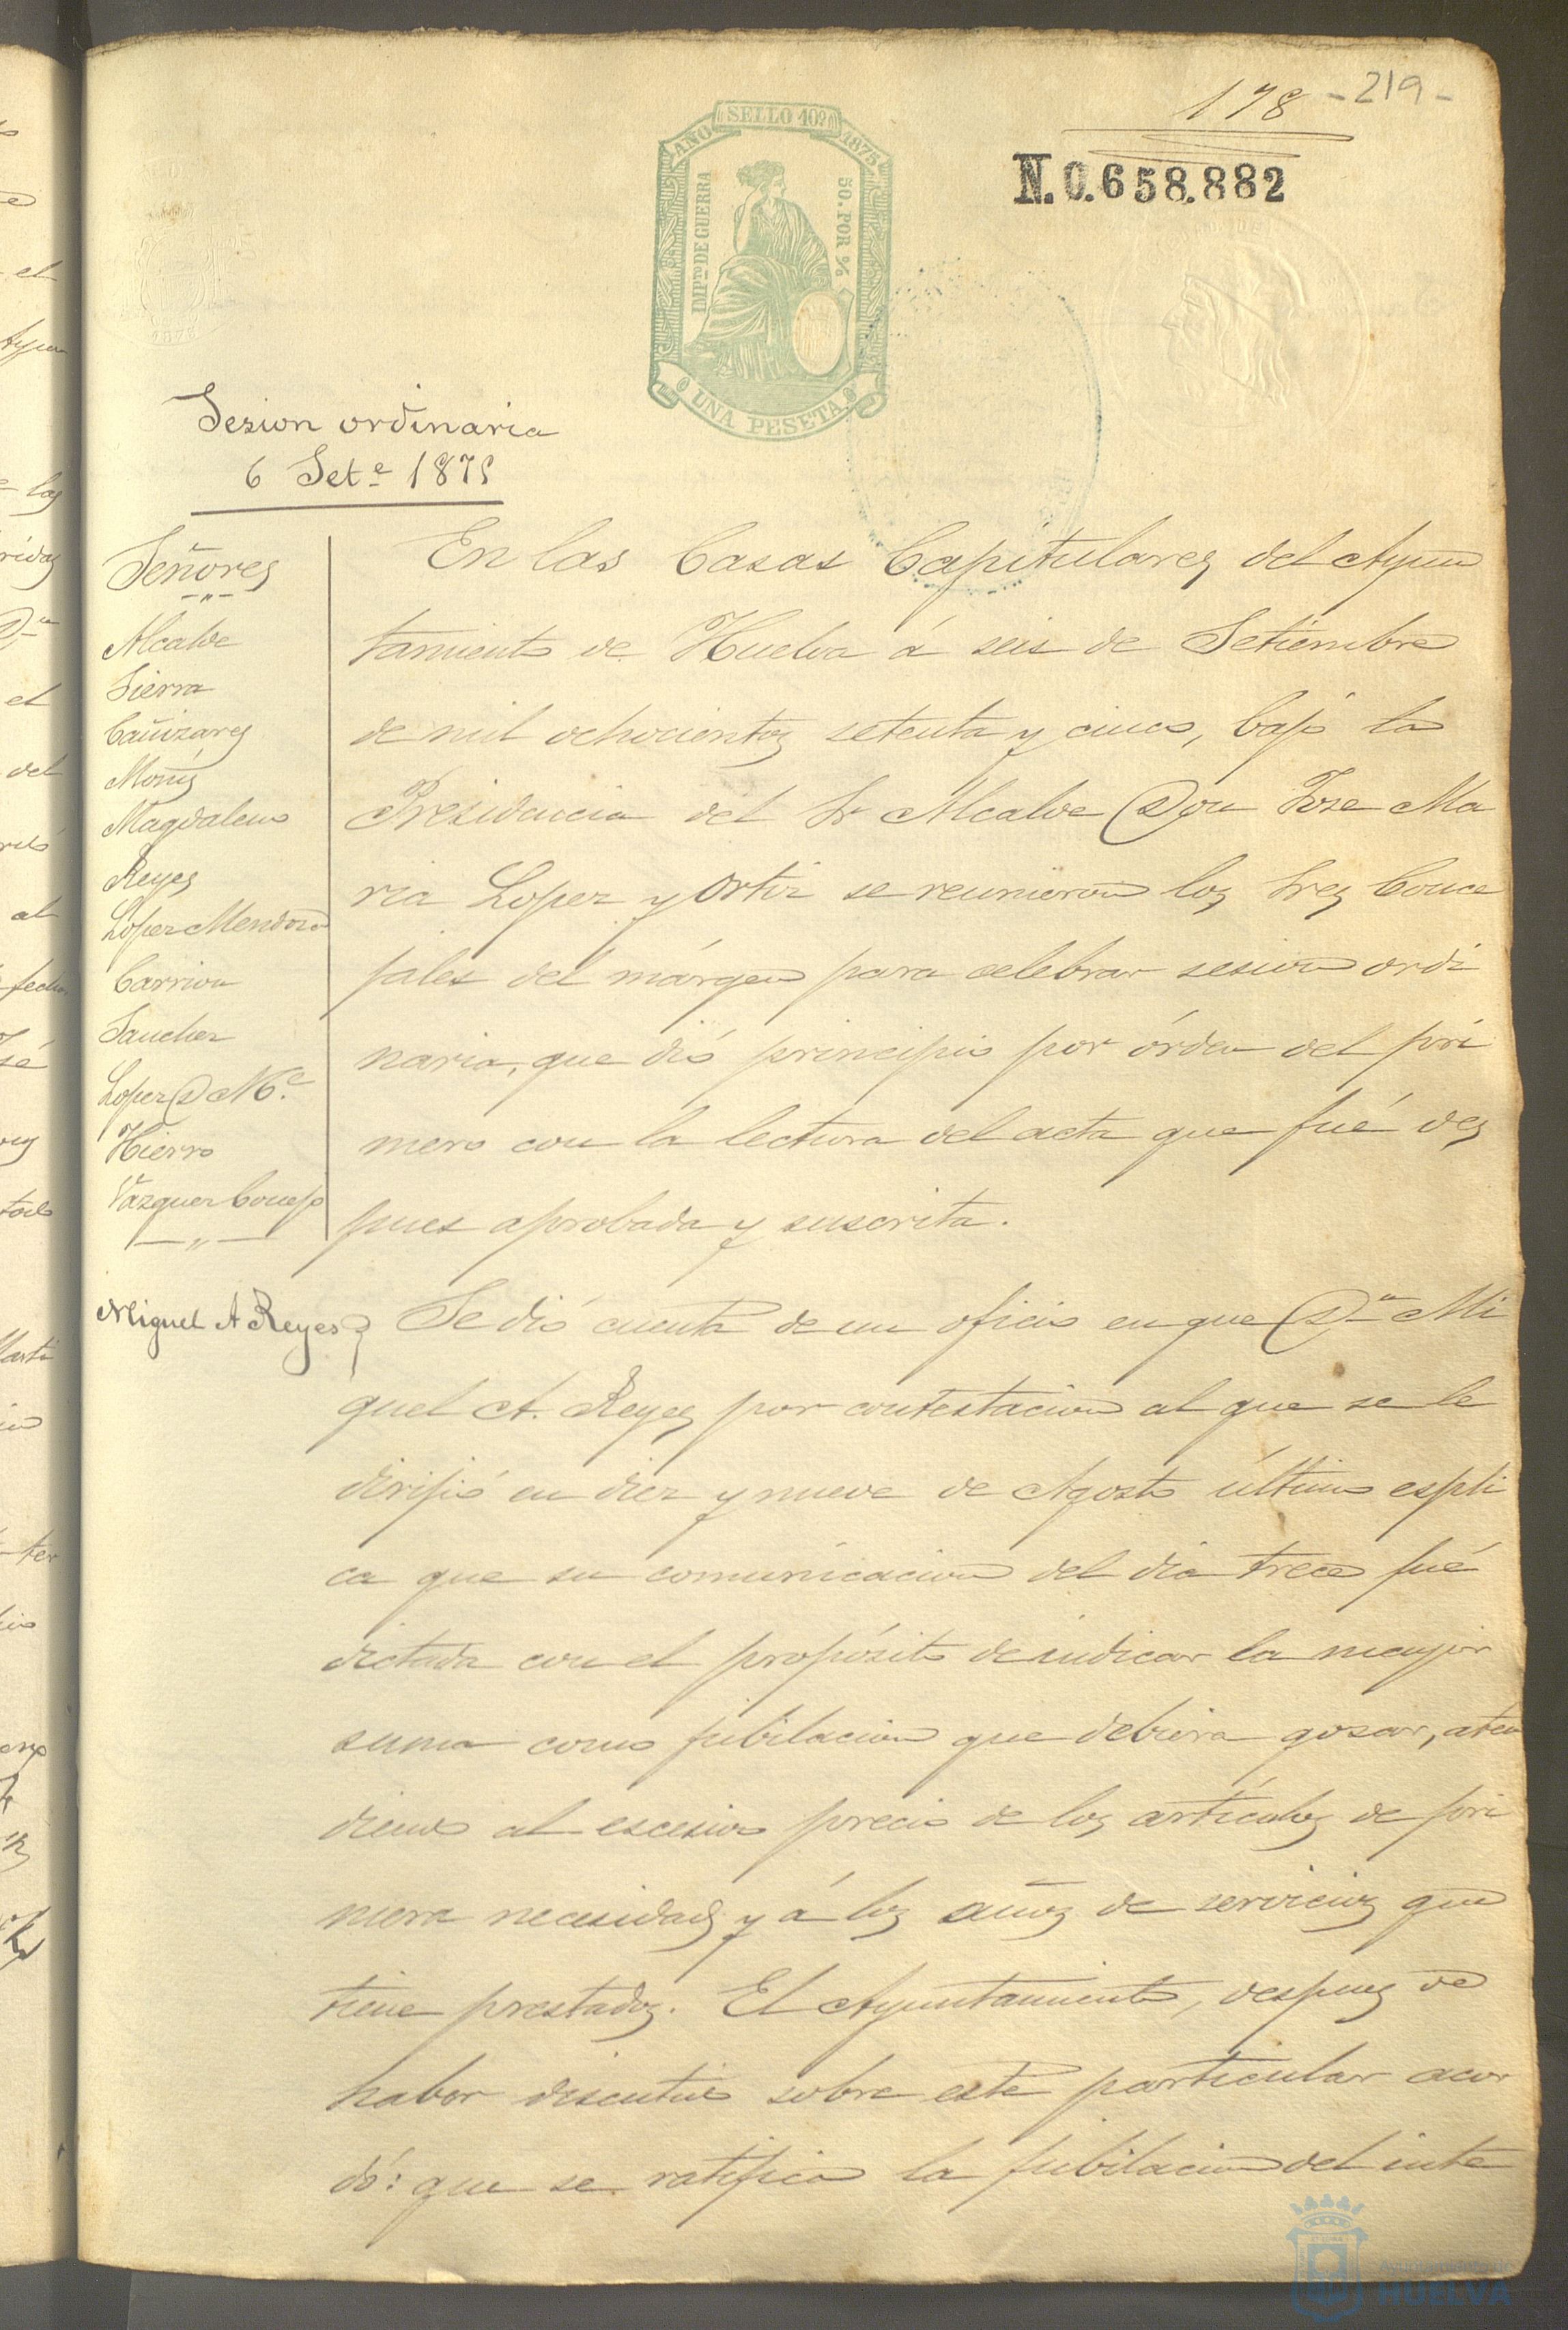 178 - 219 -
AÑO SELLO 10º 1875
IMPTO DE GUERRA
50 POR %
UNA PESETA
N. 0.658.882
Sesion ordinaria
6 Sete 1875
Señores
Alcalde
Sierra
Cañizares
Moñiz
Magdaleno
Reyes
Lopez Mendoza
Carrion
Sanchez
Lopez D Me
Hierro
Vazquez Concep
En las Casas Capitulares del Ayun
tamiento de Huelva á seis de Setiembre
de mil ochocientos setenta y cinco, bajo la
Presidencia del Sr Alcalde Don Jose Ma
ria Lopez y Ortiz se reunieron los Sres Conce
jales del márgen para celebrar sesion ordi
naria, que dió principio por órden del pri
mero con la lectura del acta que fué des
pues aprobada y suscrita.
Miguel A Reyes
Se dió cuenta de un oficio en que Dn Mi
guel A. Reyes por contestacion al que se le
dirijió en diez y nueve de Agosto último espli
ca que su comunicacion del dia trece fué
dictada con el propósito de indicar la mayor
suma como jubilacion que debiera gosar, aten
diendo al escesivo precio de los artículos de pri
mera necesidad y á los años de servicios que
tiene prestados. El Ayuntamiento, despues de
haber discutido sobre este particular acor
dó: que se ratifica la jubilacion del inte
Ayuntamiento de
HUELVA